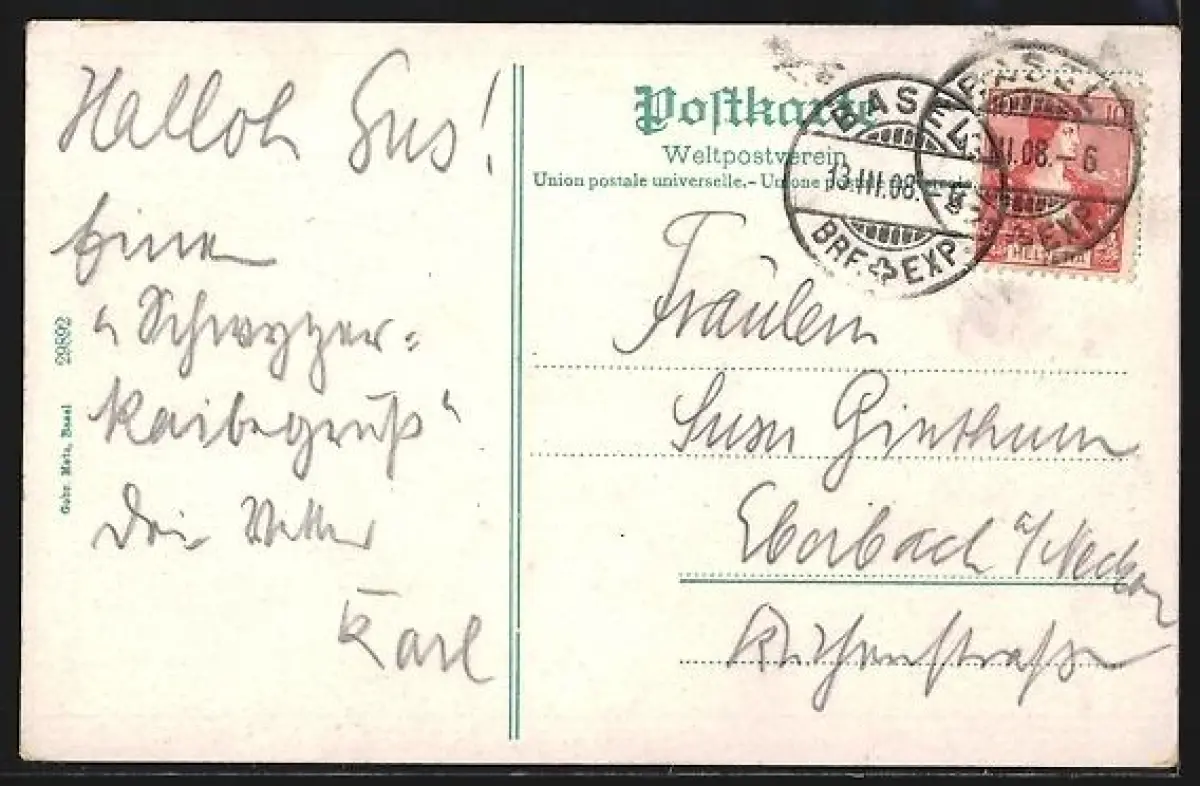 Halloh Sus!
Einen
"Schwyzer-
kaibegruß"
Dein Vetter
Karl
29892
Gebr. Metz, Basel
Postkarte
Weltpostverein
Union postale universelle. - Unione postale universale
BASEL
13.III.08.-6
BRF. EXP.
BASEL
13.III.08.-6
BRF. EXP.
10
HELVETIA
Fräulein
Susn
Eberbach a/Neckar